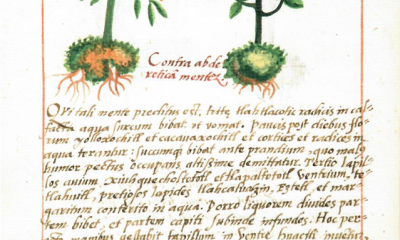 Contra abde
riticã mentez
Qui tali mente preditus est, tritę tlahtlacotic radicis in cal-
facta aqua succum bibat et vomat. Paucis post diebus flo-
rum yolloxochitl et cacauaxochitl et cortices et radices in
aqua terantur: succumqȝ bibat ante prandium, quo malꝰ
humor pectus occupans altissime demittatur. Tertio lapil-
los auium,
ventrium, te-
tlahuitl, pretiosos lapides tlahcalhuatzin, eztetl, et mar-
garitum conterito in aqua. Porro liquorem diuides par-
tem bibet, et partem capiti subinde infundes. Hoc per-
manibus gestabit lapillum in ventre